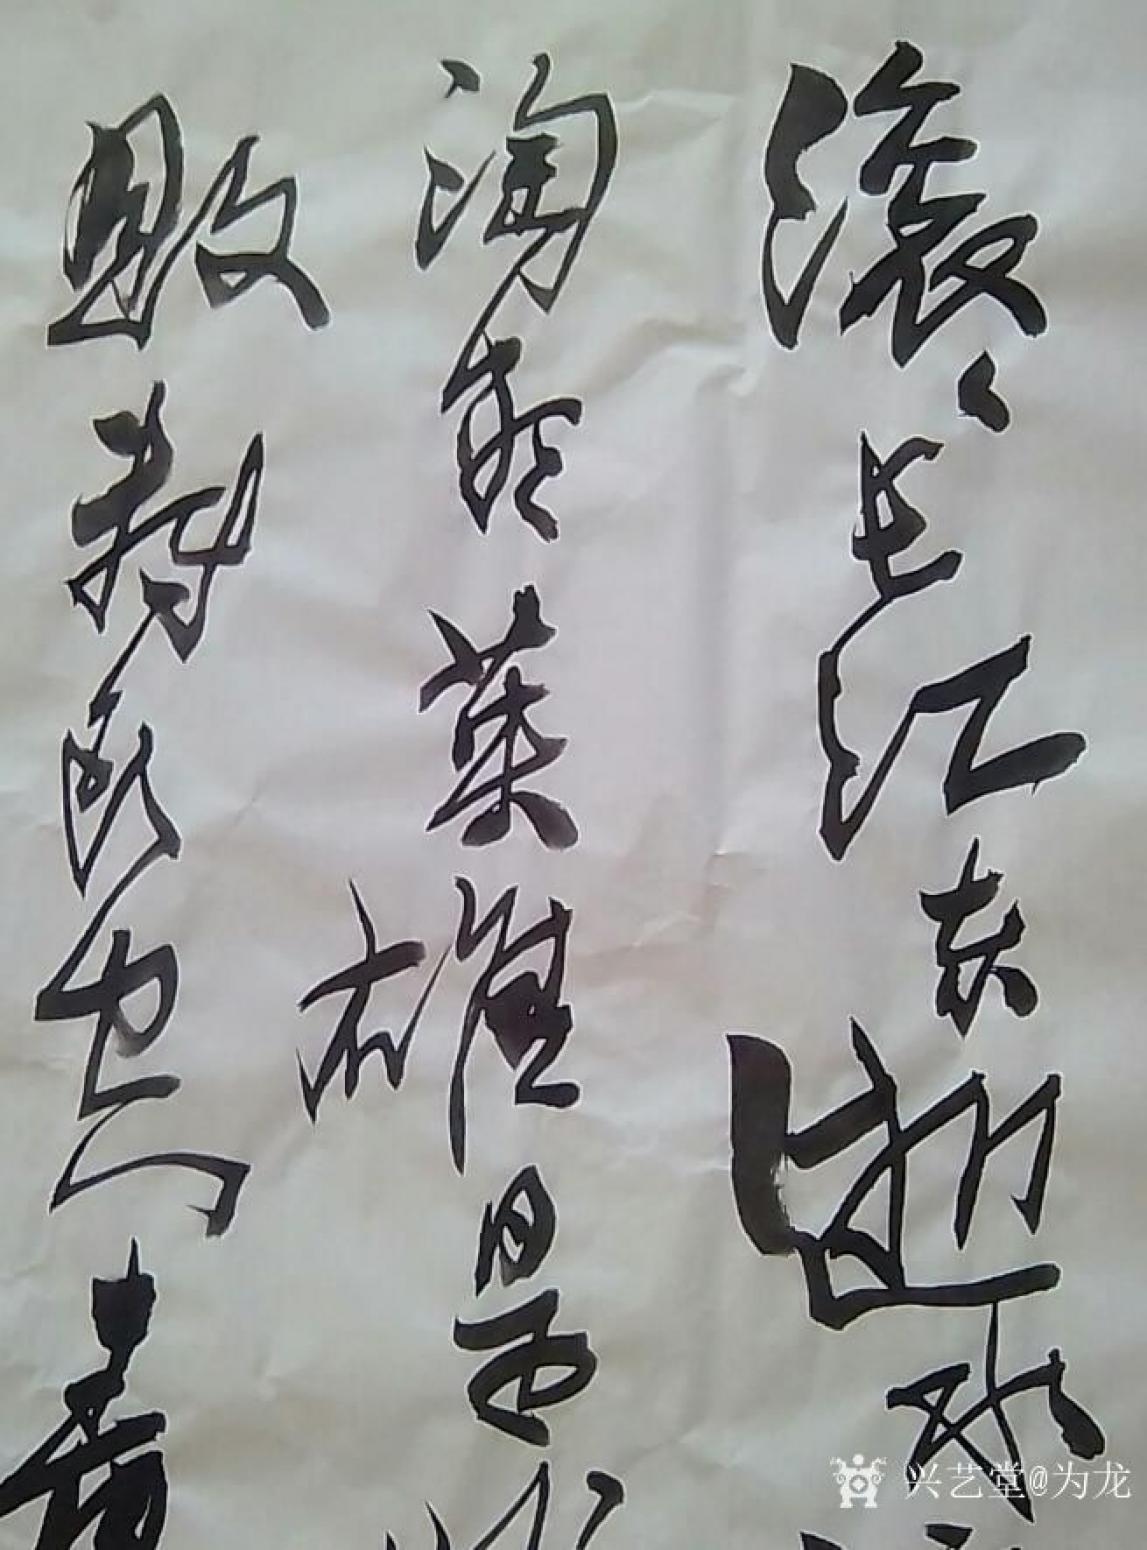 滚滚长江东逝水
淘尽英雄是
败转头空青
兴艺堂@为龙